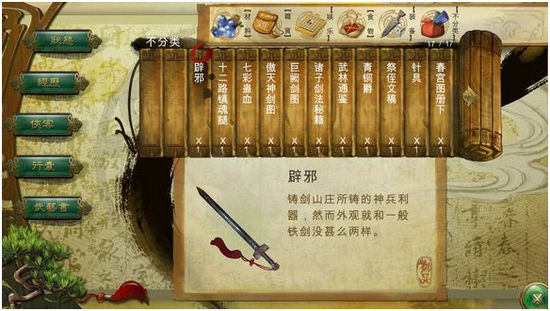 狀態
經歷
俠客
行囊
武藝書
【材料】
【娱乐】
【食物】
【装备】
【不分类】
不分类
17 / 17
辟邪 X 1
十二路镇魂腿 X 1
七彩蛊血 X 1
傲天神剑图 X 1
巨阙剑图 X 1
诸子剑法秘籍 X 1
武林通鉴 X 1
青铜爵 X 1
祭侄文稿 X 1
针具 X 1
春宫图册下 X 1
辟邪
铸剑山庄所铸的神兵利
器，然而外观就和一般
铁剑没甚么两样。
物品